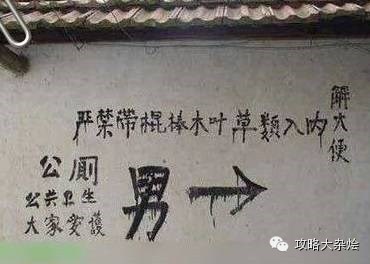 严禁带棍棒木叶草类入内
解大便
公厕
公共卫生
大家爱护
男→
攻略大杂烩